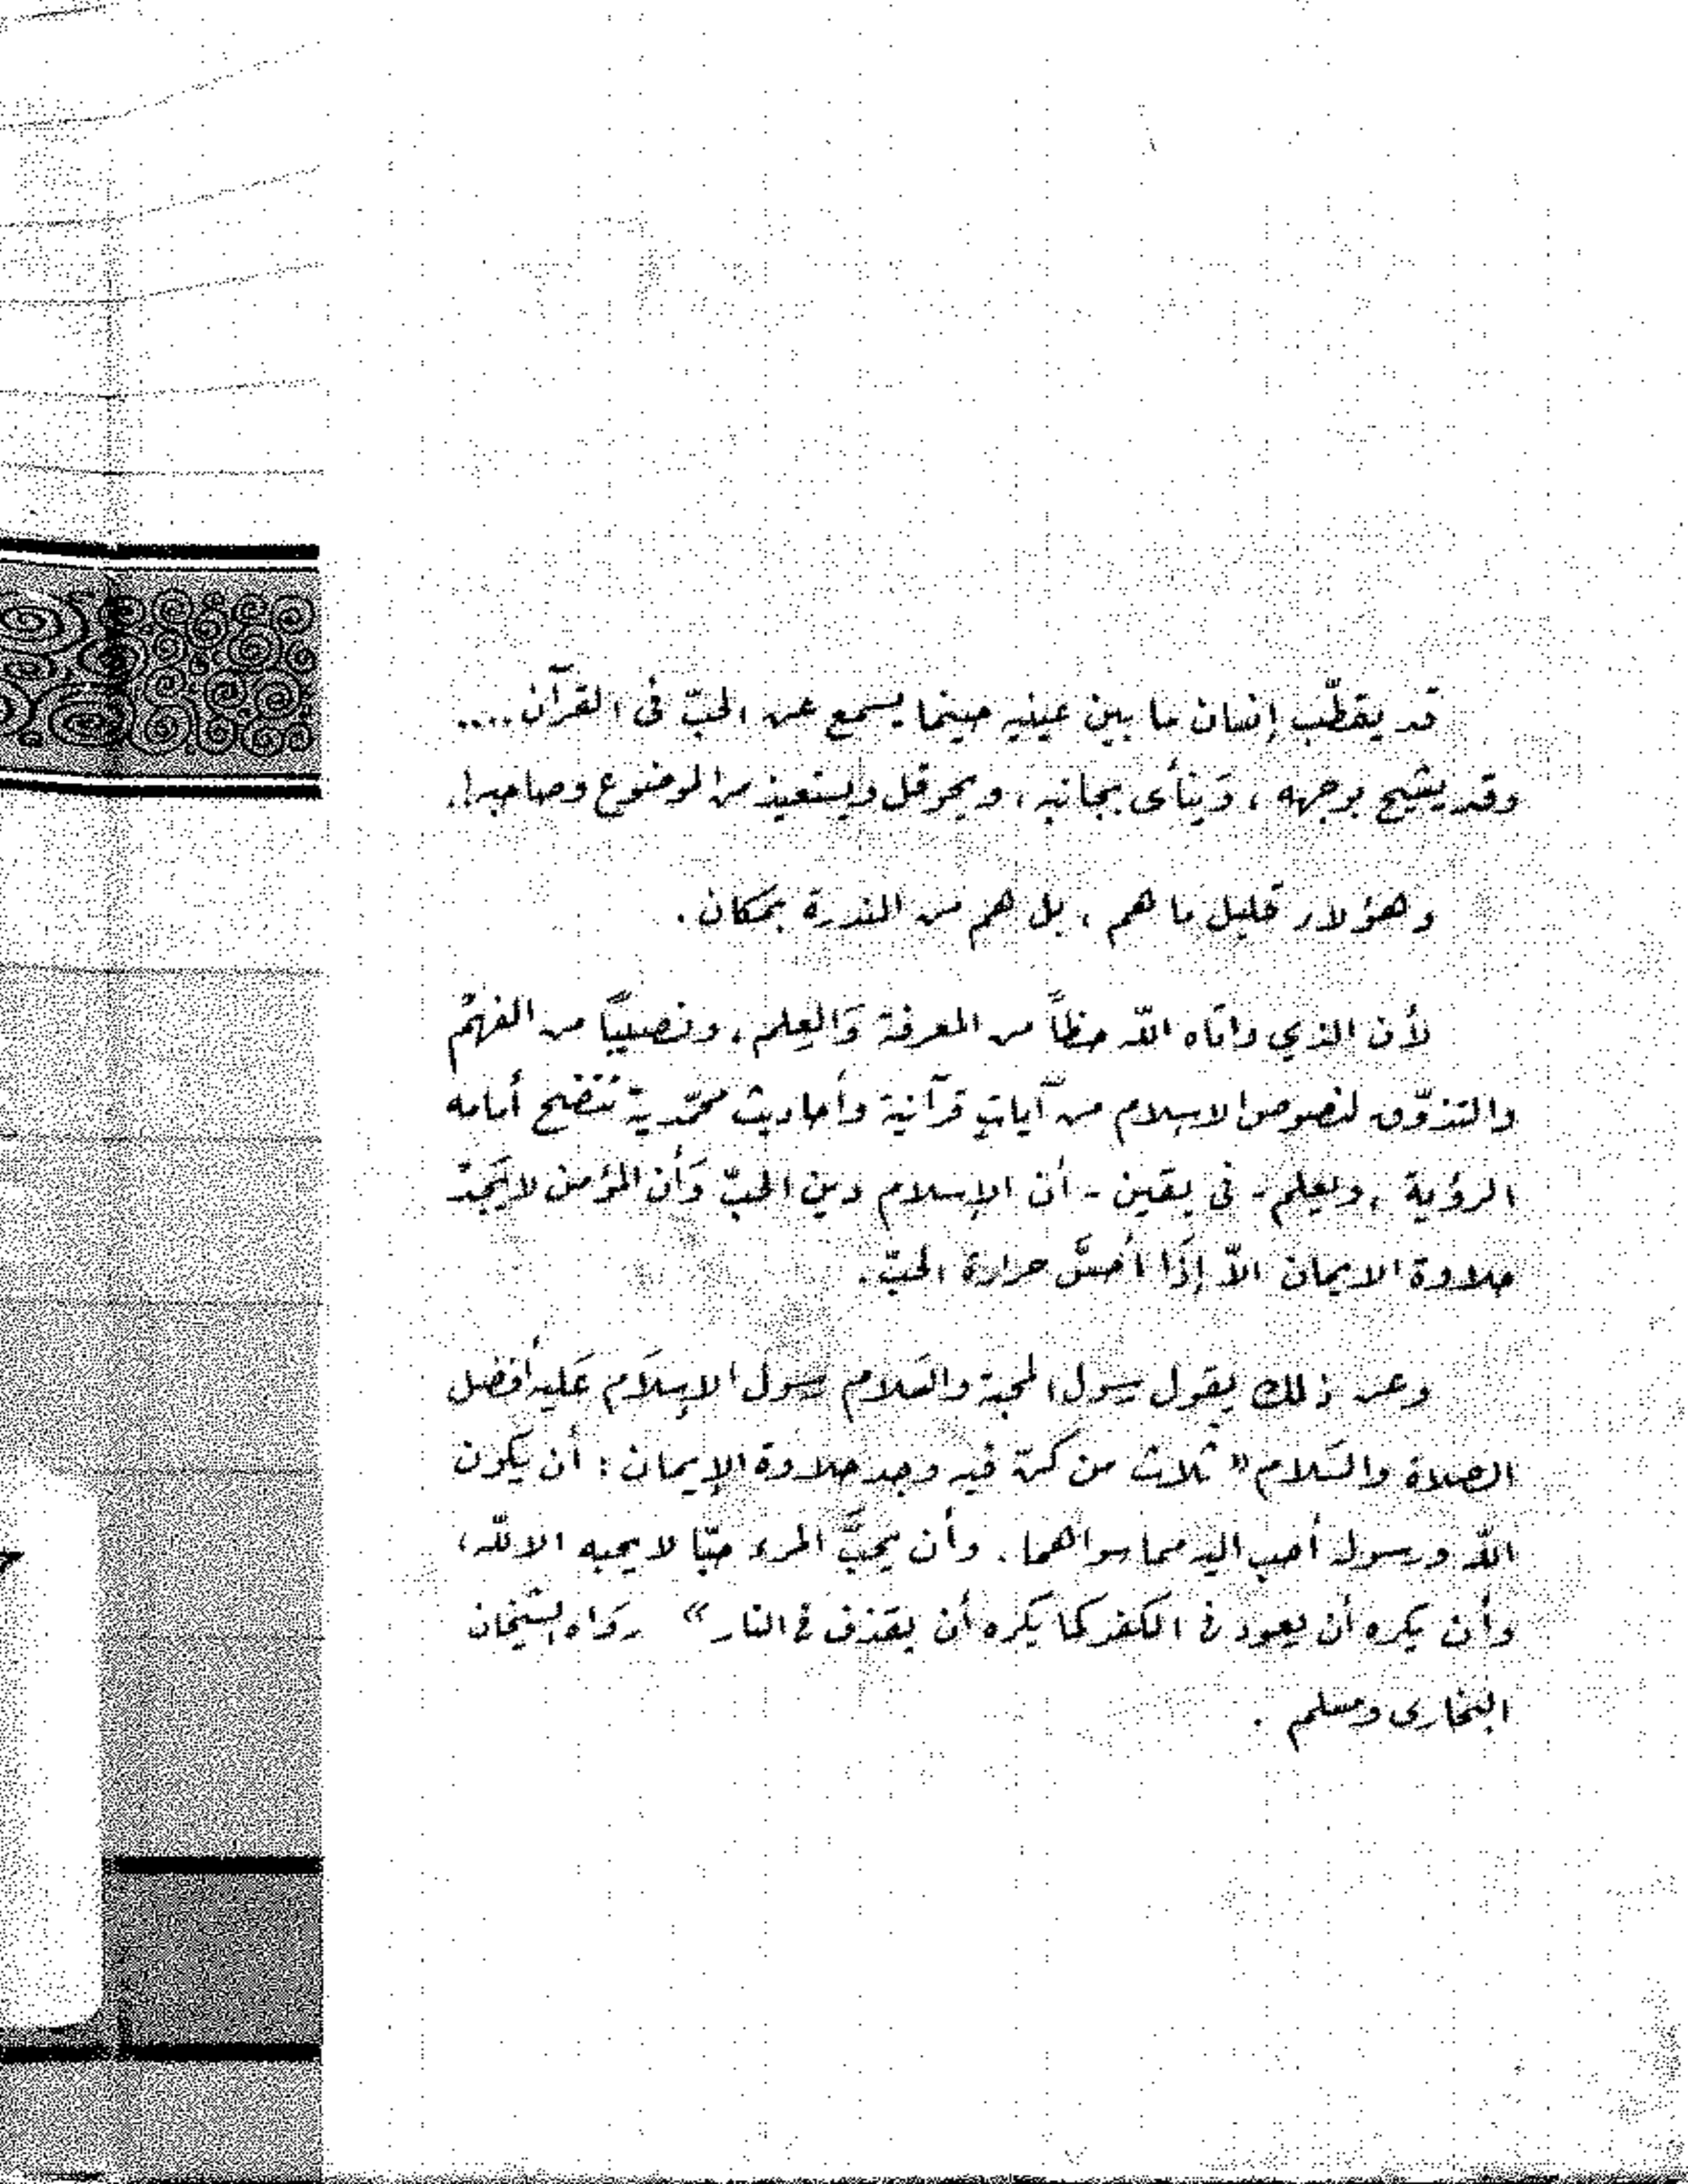 قد يقطّب إنسان ما بين عينيه حينما يسمع عن الحبّ فى القرآن ....
وقد يشيح بوجهه ، وَينأى بجانبه ، ويحوقل ويستعيذ من الموضوع وصاحبه !.
وهؤلاء قليل ما هم ، بل هم من الندرة بمَكان .
لأن الذي واتاه اللّه حظاً من المعرفة وَالعِلم ، ونصيبًا من الفهم
والتذوّق لنصوص الاسلام من آياتٍ قرآنية وأحاديث محمّدية تتضح أمامه
الرؤية ، ويعلم - فى يقين - أن الإسلام دين الحبّ وَأن المؤمن لا يَجد
حلاوة الايمان الاّ إذَا أحسَّ حرارة الحبّ .
وعن ذلك يقول رسول المحبة والسَلام رسول الإسلَام عَليه أفضل
الصَلاة والسَلام " ثلاث من كنّ فيه وجد حلاوة الإيمان : أن يَكون
اللّه ورسوله أحب اليه مما سواهما . وأن يحبَّ المرء حبّا لا يحبه الا للّه ،
وأن يكره أن يعود فى الكفر كما يَكره أن يقذف فى النار " رَوَاه الشيخان
البخارى ومسلم .